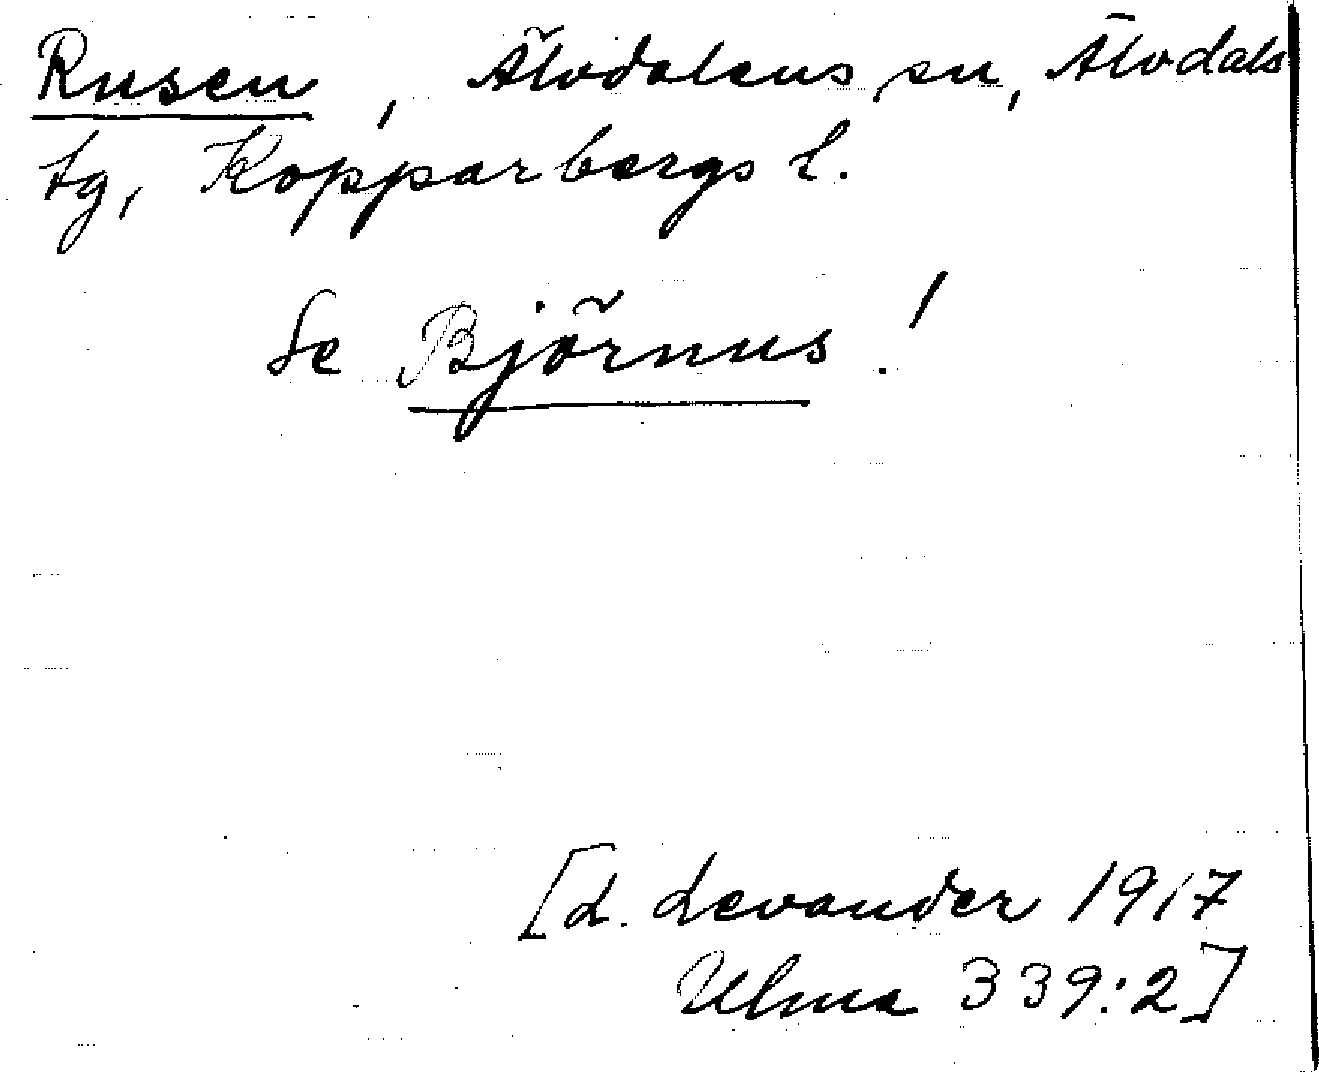 Rusen, Älvdalens sn, Älvdals
tg, Kopparbergs l.
Se Björnus!
[L. Levander 1917
Ulma 339:2]